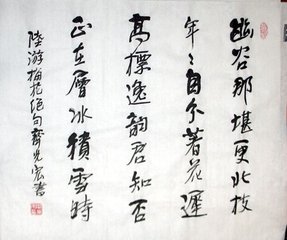 幽谷那堪更北枝
年々自分著花遲
高標逸韻君知否
正在層冰積雪時
陸游梅花絕句 齊光宏書